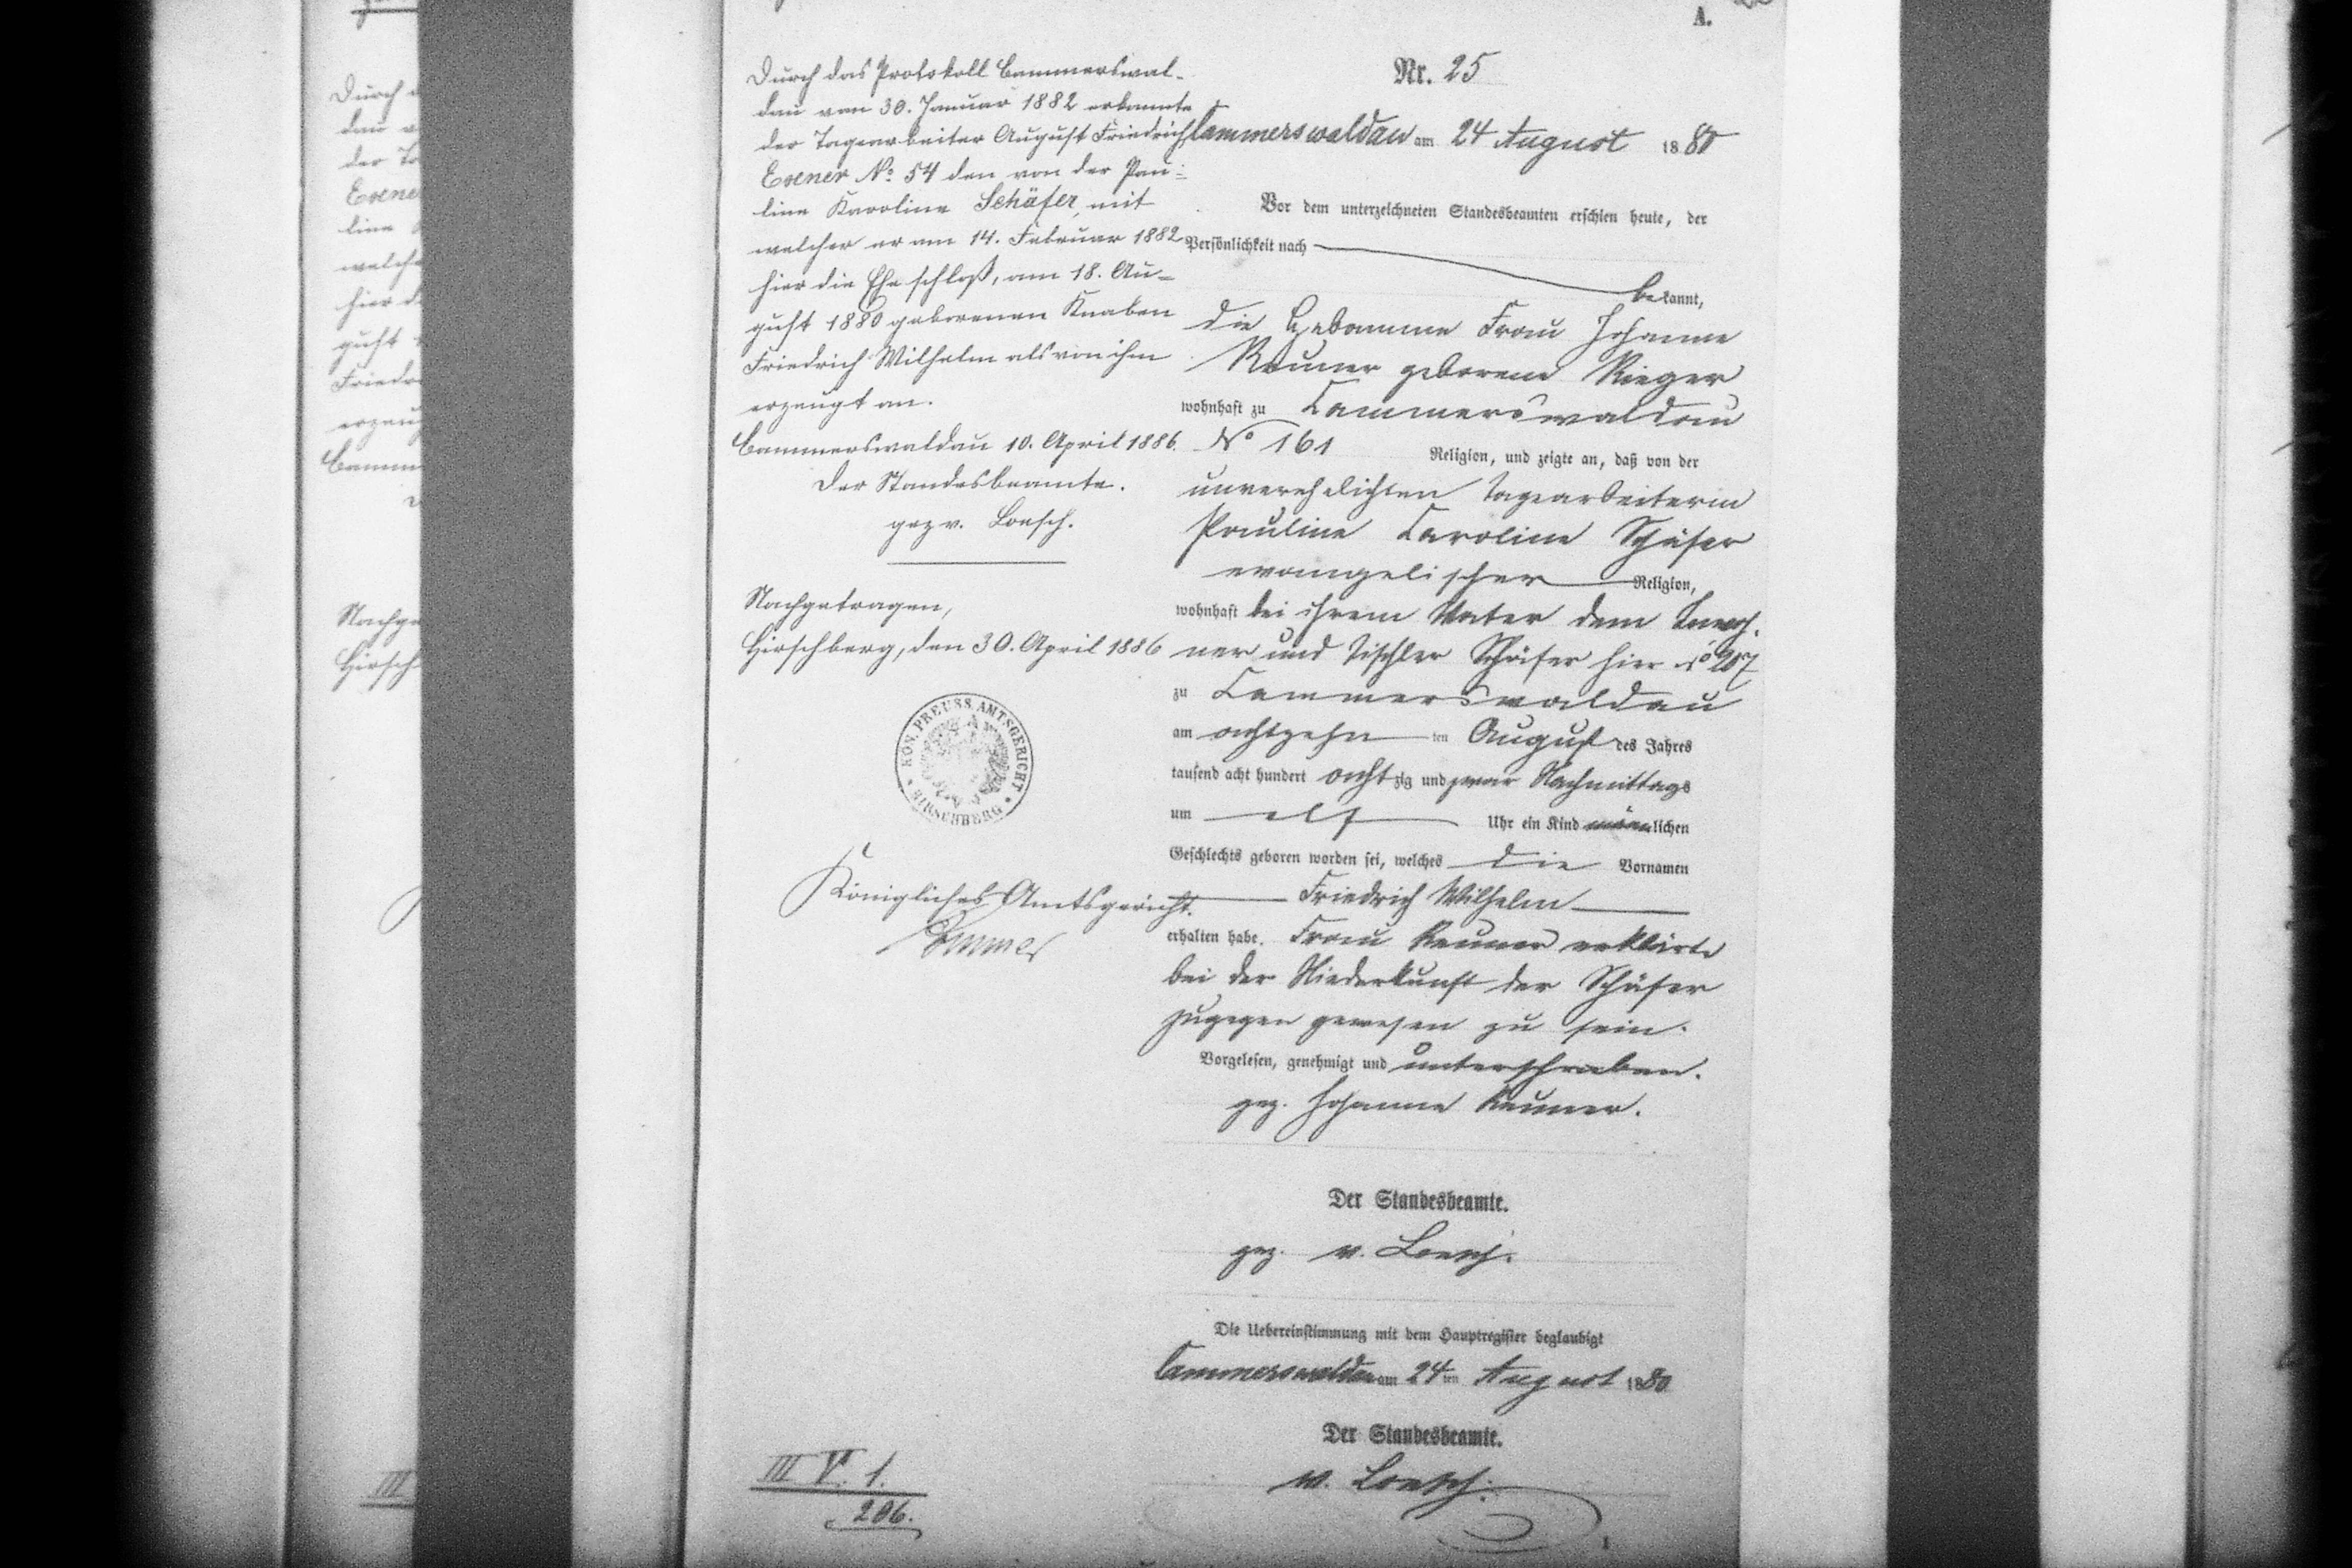 A.
Nr. 25
Cammerswaldau am 24 August 1880
Vor dem unterzeichneten Standesbeamten erschien heute, der
Persönlichkeit nach
bekannt,
die Hebamme Frau Johanne
Reuner geborene Rieger
wohnhaft zu Cammerswaldau
No 161
Religion, und zeigte an, daß von der
unverehelichten Tagearbeiterin
Pauline Caroline Schäfer
evangelischer Religion,
wohnhaft bei ihrem Vater dem Inwoh-
ner und Tischler Schäfer hier No 207
zu Cammerswaldau
am achtzehn ten August des Jahres
tausend acht hundert achtzig und zwar Nachmittags
um elf Uhr ein Kind männlichen
Geschlechts geboren worden sei, welches die Vornamen
Friedrich Wilhelm
erhalten habe. Frau Reuner erklärte
bei der Niederkunft der Schäfer
zugegen gewesen zu sein.
Vorgelesen, genehmigt und unterschrieben.
gez. Johanne Reuner.
Der Standesbeamte.
gez. v. Loesch.
Die Uebereinstimmung mit dem Hauptregister beglaubigt
Cammerswaldau am 24ten August 1880
Der Standesbeamte.
v. Loesch.
Durch das Protokoll Cammerswal-
dau vom 30. Januar 1882 erkannte
der Tagearbeiter August Friedrich
Exner No. 54 den von der Pau-
line Karoline Schäfer, mit
welcher er am 14. Februar 1882
hier die Ehe schloß, am 18. Au-
gust 1880 geborenen Knaben
Friedrich Wilhelm als von ihm
erzeugt an.
Cammerswaldau 10. April 1886.
Der Standesbeamte.
gez v. Loesch.
Nachgetragen,
Hirschberg, den 30. April 1886
KÖN. PREUSS. AMTSGERICHT
HIRSCHBERG
Königliches Amtsgericht.
III V. 1.
206.